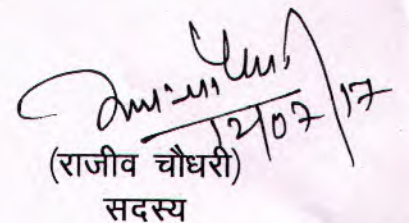 12/07/17
(राजीव चौधरी)
सदस्य